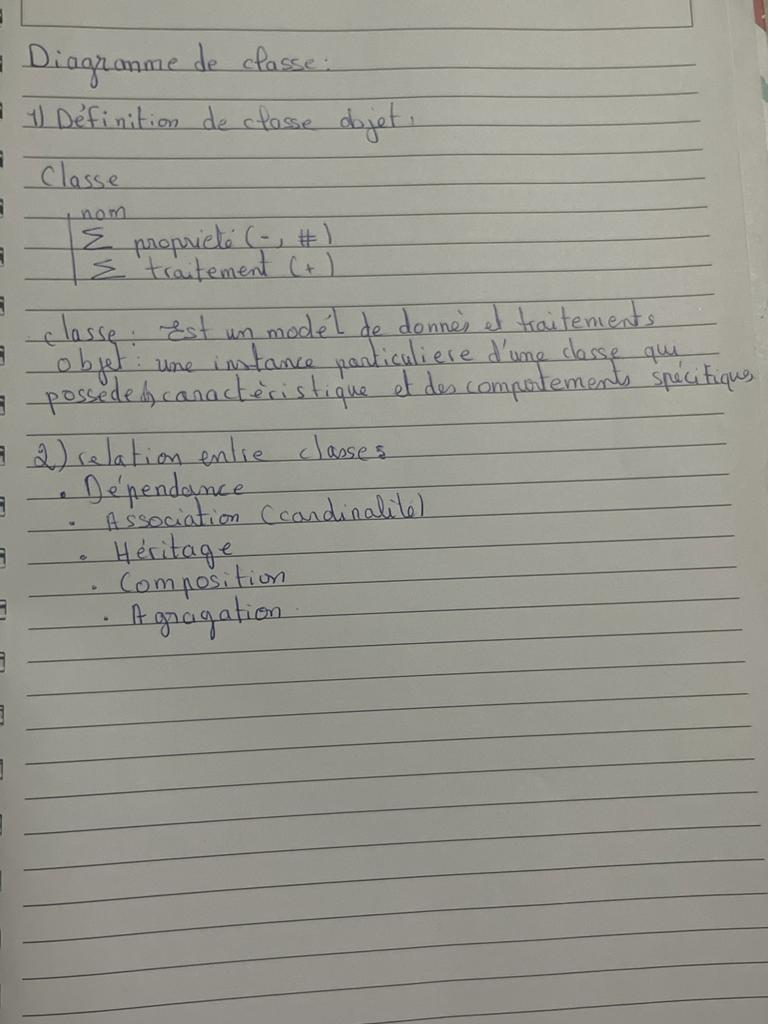 Diagramme de classe :
1) Définition de classe objet :
Classe
nom
Σ propriété (-, #)
Σ traitement (+)
classe : Est un modél de donnés et traitements
objet : une instance particuliere d'une classe qui
possède caractèristique et des comportements spécifiques
2) relation entre classes
• Dépendance
• Association (cardinalité)
• Héritage
• Composition
• Agragation